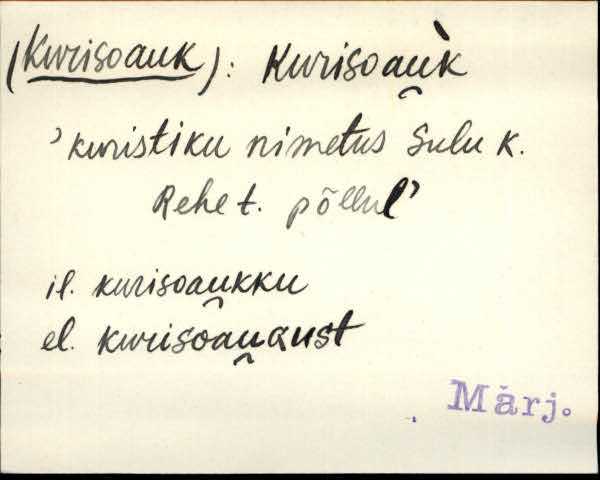 (Kurisoauk): Kurisoau̯k̀
'kuristiku nimetus Sulu k.
Rehe t. põllul'
il. kurisoau̯kku
el. kurisoau̯aust
Märj.